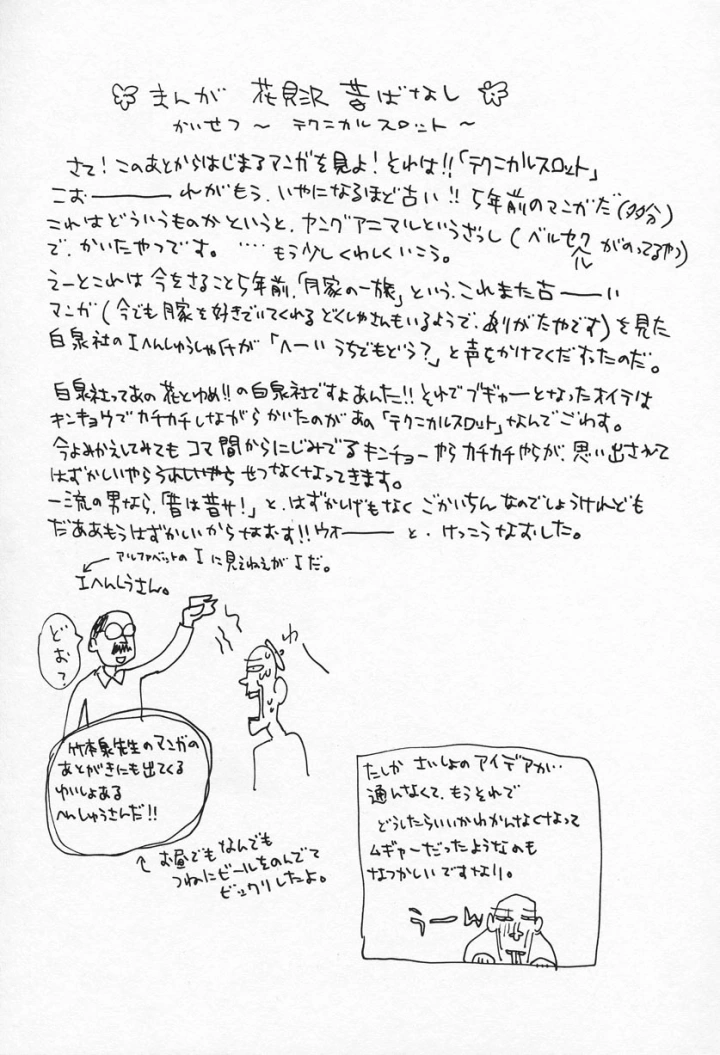 まんが 花見沢 昔ばなし
かいせつ ～ テクニカルスロット ～
さて！このあとからはじまるマンガを見よ！それは!!「テクニカルスロット」
こお―――れがもう、いやになるほど古い!! 5年前のマンガだ（多分）
これはどういうものかというと、ヤングアニマルというざっし（ベルセルクがのってるやつ）
で、かいたやつです。 ……もう少しくわしくいこう。
えーとこれは今をさること5年前、「月家の一族」という、これまた古――い
マンガ（今でも月家を好きでいてくれるどくしゃさんもいるようで、ありがたやです）を見た
白泉社のIへんしゅうしゃHが「へーい うちでもどう？」と声をかけてくだすったのだ。
白泉社ってあの花とゆめ!!の白泉社ですよあんた!!それでブギャーとなったオイラは
キンキョウでカチカチしながらかいたのがあの「テクニカルスロット」なんでごわす。
今よみかえしてみてもコマ間からにじみでるキンチョーやらカチカチやらが、思い出されて
はずかしいやら うれしいやら せつなくなってきます。
一流の男なら、「昔は昔サ！」と、はずかしげもなく ごかいちん なのでしょうけれども
だああもうはずかしいからなおす!!ウオ―――と、けっこうなおしました。
アルファベットのIに見えねえがIだ。
Iへんしうさん。
どお？
わーん
竹本泉先生のマンガの
あとがきにも出てくる
ゆいしょある
へんしゅうさんだ!!
↑お昼でもなんでも
つねにビールをのんでて
ビックリしたよ。
たしか さいしょのアイデアが…
通んなくて、もうそれで
どうしたらいいかわかんなくなって
ムギャーだったようなのも
なつかしいですなり。
うーん